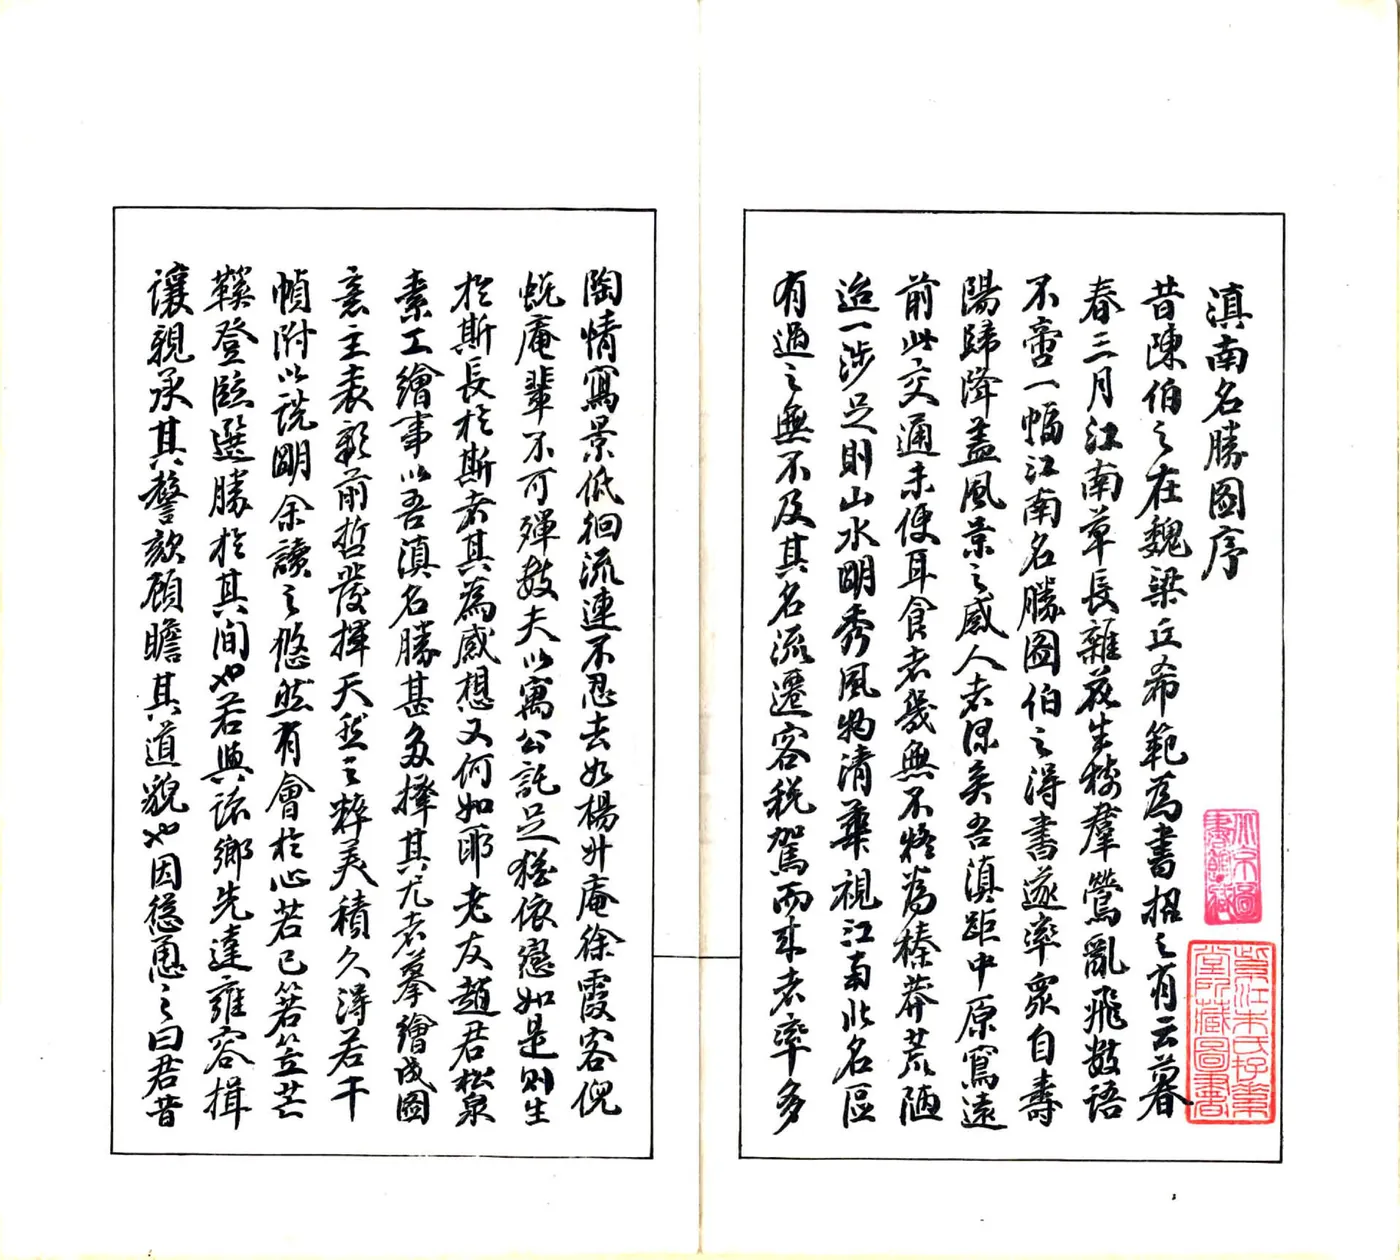 滇南名勝圖序
昔陳伯之在魏梁丘希範為書招之有云暮
春三月江南草長雜花生樹羣鶯亂飛數語
不啻一幅江南名勝圖伯之得書遂率眾自壽
陽歸降蓋風景之感人者深矣吾滇距中原寫遠
前此交通未便耳食者幾無不疑為榛莽荒陋
迨一涉足則山水明秀風物清華視江南北名區
有過之無不及其名流遷客稅駕而來者率多
陶情寫景低徊流連不忍去如楊升庵徐霞客倪
蛻庵輩不可殫數夫以寓公託足猶依戀如是則生
於斯長於斯者其為感想又何如耶老友趙君松泉
素工繪事以吾滇名勝甚多擇其尤者摹繪成圖
意主表彰前哲發揮天然之粹美積久得若干
幀附以說明余讀之悠然有會於心若已箬笠芒
鞵登臨選勝於其間也若與諸鄉先達雍容揖
讓親承其謦欬顧瞻其道貌也因慫恿之曰君昔
紫江朱氏存素
堂所藏圖書